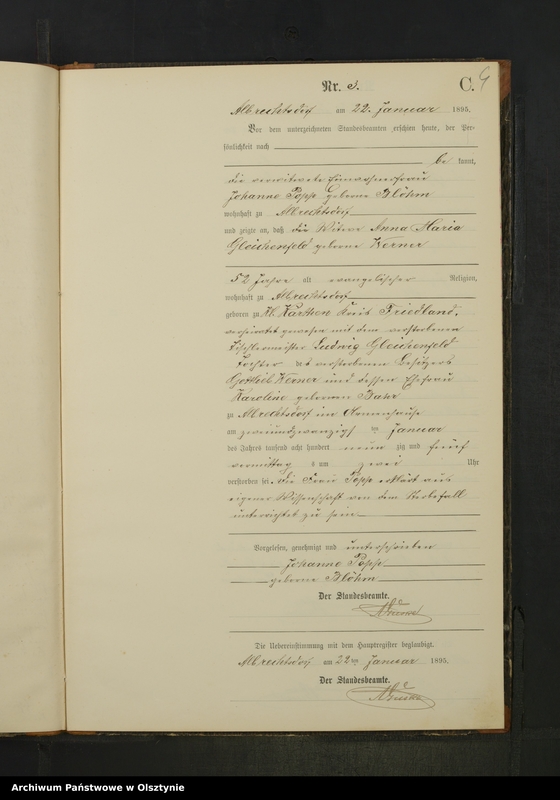 Nr. 3. C. 9
Albrechtsdorf am 22. Januar 1895.
Vor dem unterzeichneten Standesbeamten erschien heute, der Per-
sönlichkeit nach
be kannt,
die verwitwete Einwohnerfrau
Johanne Popp geborne Blöhm
wohnhaft zu Albrechtsdorf
und zeigte an, daß die Witwe Anna Maria
Gleichenfeld geborne Werner
52 Jahre alt evangelischer Religion,
wohnhaft zu Albrechtsdorf
geboren zu Kl. Kreis Friedland,
verheiratet gewesen mit dem verstorbenen
Tischlermeister Ludwig Gleichenfeld
Tochter des verstorbenen Besitzers
Gottlieb Werner und dessen Ehefrau
Karoline geborenen
zu Albrechtsdorf im Armenhause
am zweiundzwanzigsten Januar
des Jahres tausend acht hundert neun zig und fünf
vormittags um zwei Uhr
verstorben sei. Die Frau Popp erklärt aus
eigener Wissenschaft von dem Sterbefall
unterrichtet zu sein
Vorgelesen, genehmigt und unterschrieben
Johanne Popp
geborne Blöhm
Der Standesbeamte.
Die Uebereinstimmung mit dem Hauptregister beglaubigt.
Albrechtsdorf am 22ten Januar 1895.
Der Standesbeamte.
Archiwum Państwowe w Olsztynie